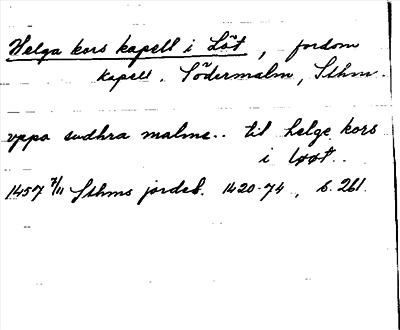 Helga kors kapell i Löt, fordom
kapell. Södermalm, Sthm.
vppa sudhra malme.. til helge kors
i lööt..
1457 7/11 Sthms jordeb. 1420-74, s. 261.